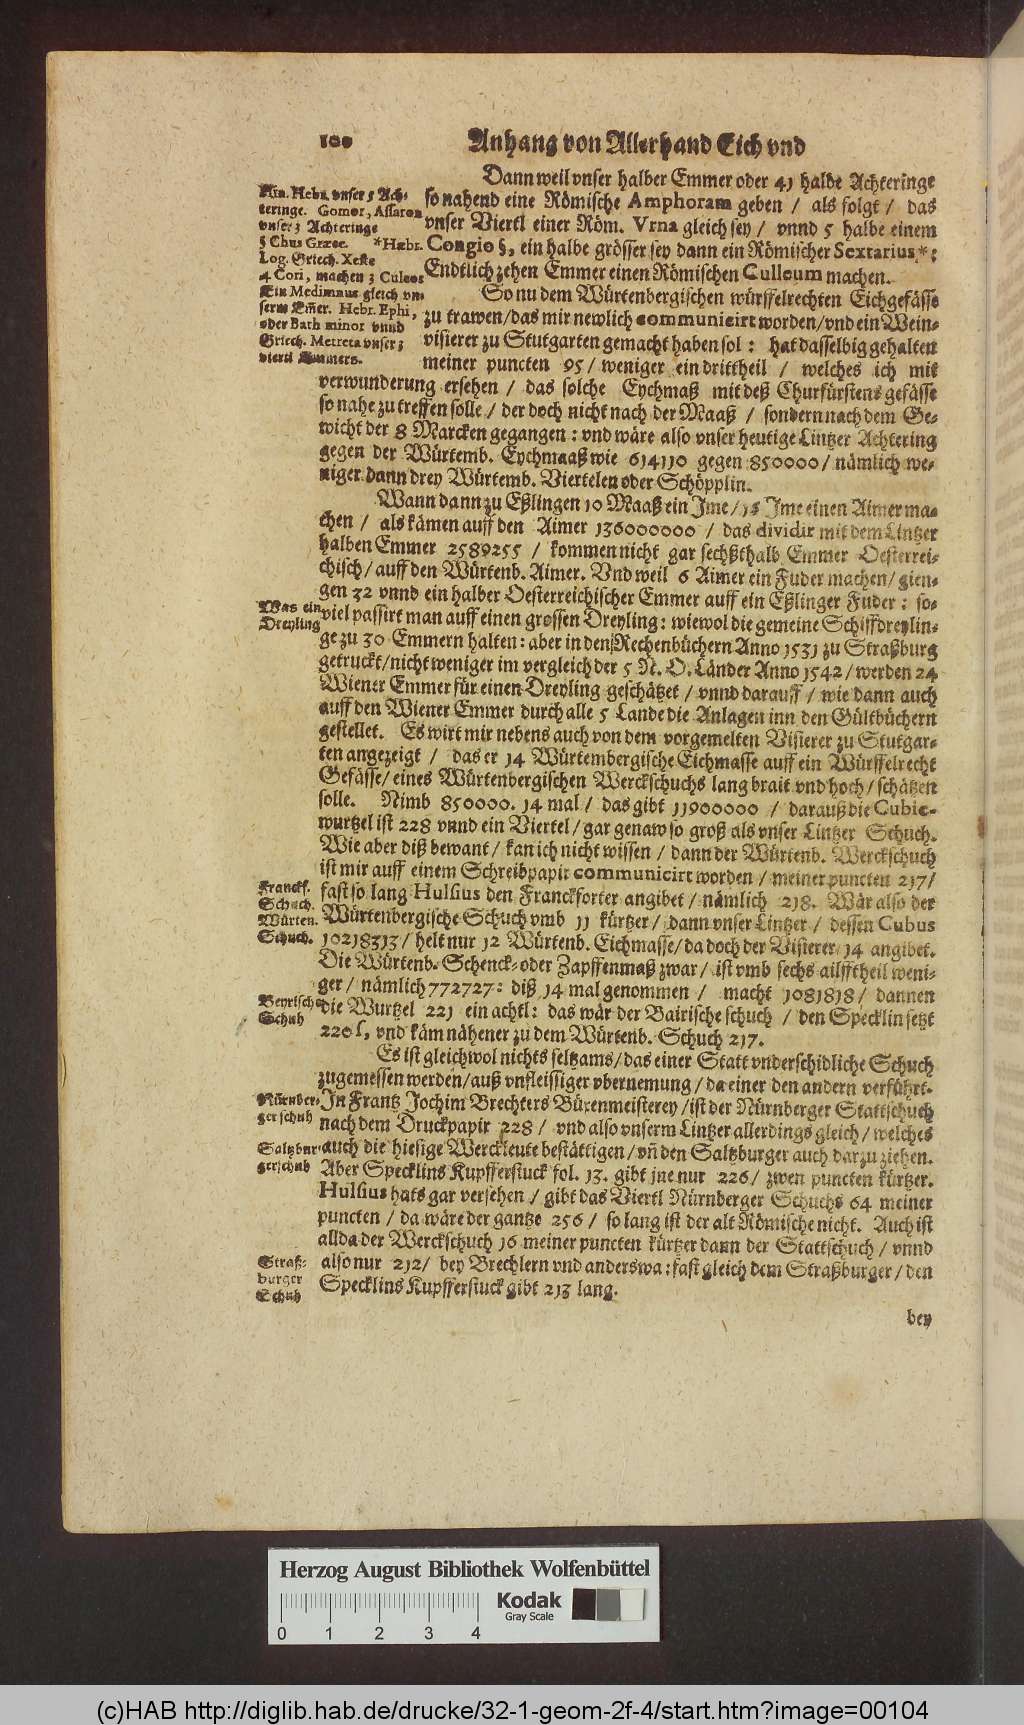 100
Anhang von Allerhand Eich vnd
Dann weil vnser halber Emmer oder 41 halbe Achteringe
so nahend eine Römische Amphoram geben / als folgt / das
vnser Viertl einer Röm. Vrna gleich sey / vnnd 5 halbe einem
Congio §, ein halbe grösser sey dann ein Römischer Sextarius *:
Endtlich zehen Emmer einen Römischen Culleum machen.
Hin. Hebr. vnser 5 Ach-
teringe. Gomor, Assaron
vnser 3 Achteringe
§ Chus Græc. *Hæbr.
Log. Griech. Xeste
4 Cori, machen 3 Culeos
Ein Medimnus gleich vn-
serm Em̄er. Hebr. Ephi,
oder Bath minor vnnd
Griech. Metreta vnser 3
viertl Emmers.
So nu dem Würtenbergischen würffelrechten Eichgefässe
zu trawen / das mir newlich communicirt worden / vnd ein Wein-
visierer zu Stutgarten gemacht haben sol: hat dasselbig gehalten
meiner puncten 95 / weniger ein drittheil / welches ich mit
verwunderung ersehen / das solche Eychmaß mit deß Churfürstens gefässe
so nahe zu treffen solle / der doch nicht nach der Maaß / sondern nach dem Ge-
wicht der 8 Marcken gegangen: vnd wäre also vnser heutige Lintzer Achtering
gegen der Würtemb. Eychmaaß wie 614110 gegen 850000 / nämlich we-
niger dann drey Würtemb. Viertelen oder Schöpplin.
Wann dann zu Eßlingen 10 Maaß ein Jme / 16 Jme einen Aimer ma-
chen / als kämen auff den Aimer 136000000 / das dividir mit dem Lintzer
halben Emmer 2589255 / kommen nicht gar sechßthalb Emmer Oesterrei-
chisch / auff den Würtenb. Aimer. Vnd weil 6 Aimer ein Fuder machen / gien-
gen 32 vnnd ein halber Oesterreichischer Emmer auff ein Eßlinger Fuder: so-
Was ein
Dreyling
viel passirt man auff einen grossen Dreyling: wiewol die gemeine Schiffdreylin-
ge zu 30 Emmern halten: aber in den Rechenbüchern Anno 1531 zu Straßburg
getruckt / nicht weniger im vergleich der 5 N. O. Länder Anno 1542 / werden 24
Wiener Emmer für einen Dreyling geschätzet / vnnd darauff / wie dann auch
auff den Wiener Emmer durch alle 5 Lande die Anlagen inn den Gültbüchern
gestellet. Es wirt mir nebens auch von dem vorgemelten Visierer zu Stutgar-
ten angezeigt / das er 14 Würtembergische Eichmasse auff ein Würffelrecht
Gefässe / eines Würtenbergischen Werckschuchs lang brait vnd hoch / schätzen
solle. Nimb 850000. 14 mal / das gibt 11900000 / darauß die Cubic-
wurtzel ist 228 vnnd ein Viertel / gar genaw so groß als vnser Lintzer Schuch.
Wie aber diß bewant / kan ich nicht wissen / dann der Würtenb. Werckschuch
ist mir auff einem Schreibpapir communicirt worden / meiner puncten 217 /
Franckf.
Schuch.
Würten.
Schuch.
fast so lang Hulsius den Franckforter angibet / nämlich 218. Wär also der
Würtenbergische Schuch vmb 11 kürtzer / dann vnser Lintzer / dessen Cubus
10218313 / helt nur 12 Würtenb. Eichmasse / da doch der Visierer 14 angibet.
Die Würtenb. Schenck- oder Zapffenmaß zwar / ist vmb sechs ailfftheil weni-
ger / nämlich 772727: diß 14 mal genomen / macht 1081818 / dannen
Beyrische
Schuh
die Wurtzel 221 ein achtl: das wär der Bairische schuch / den Specklin setzt
220 ſ, vnd käm nähener zu dem Würtenb. Schuch 217.
Es ist gleichwol nichts seltzams / das einer Statt vnderschidliche Schuch
zugemessen werden / auß vnfleissiger vbernemung / da einer den andern verführt.
Nürnber-
ger schuh
In Frantz Jochim Brechters Büxenmeisterey / ist der Nürnberger Stattschuch
nach dem Druckpapir 228 / vnd also vnserm Lintzer allerdings gleich / welches
Saltzbur-
gerschub
auch die hiesige Werckleute bestättigen / vn̄ den Saltzburger auch darzu ziehen.
Aber Specklins Kupfferstuck fol. 13. gibt jne nur 226 / zwen puncten kürtzer.
Hulsius hats gar versehen / gibt das Viertl Nürnberger Schuchs 64 meiner
puncten / da wäre der gantze 256 / so lang ist der alt Römische nicht. Auch ist
allda der Werckschuch 16 meiner puncten kürtzer dann der Stattschuch / vnnd
Straß-
burger
Schuh
also nur 212 / bey Brechlern vnd anderswa: fast gleich dem Straßburger / den
Specklins Kupfferstuck gibt 213 lang.
bey
Herzog August Bibliothek Wolfenbüttel
0 1 2 3 4
Kodak
Gray Scale
(c)HAB http://diglib.hab.de/drucke/32-1-geom-2f-4/start.htm?image=00104